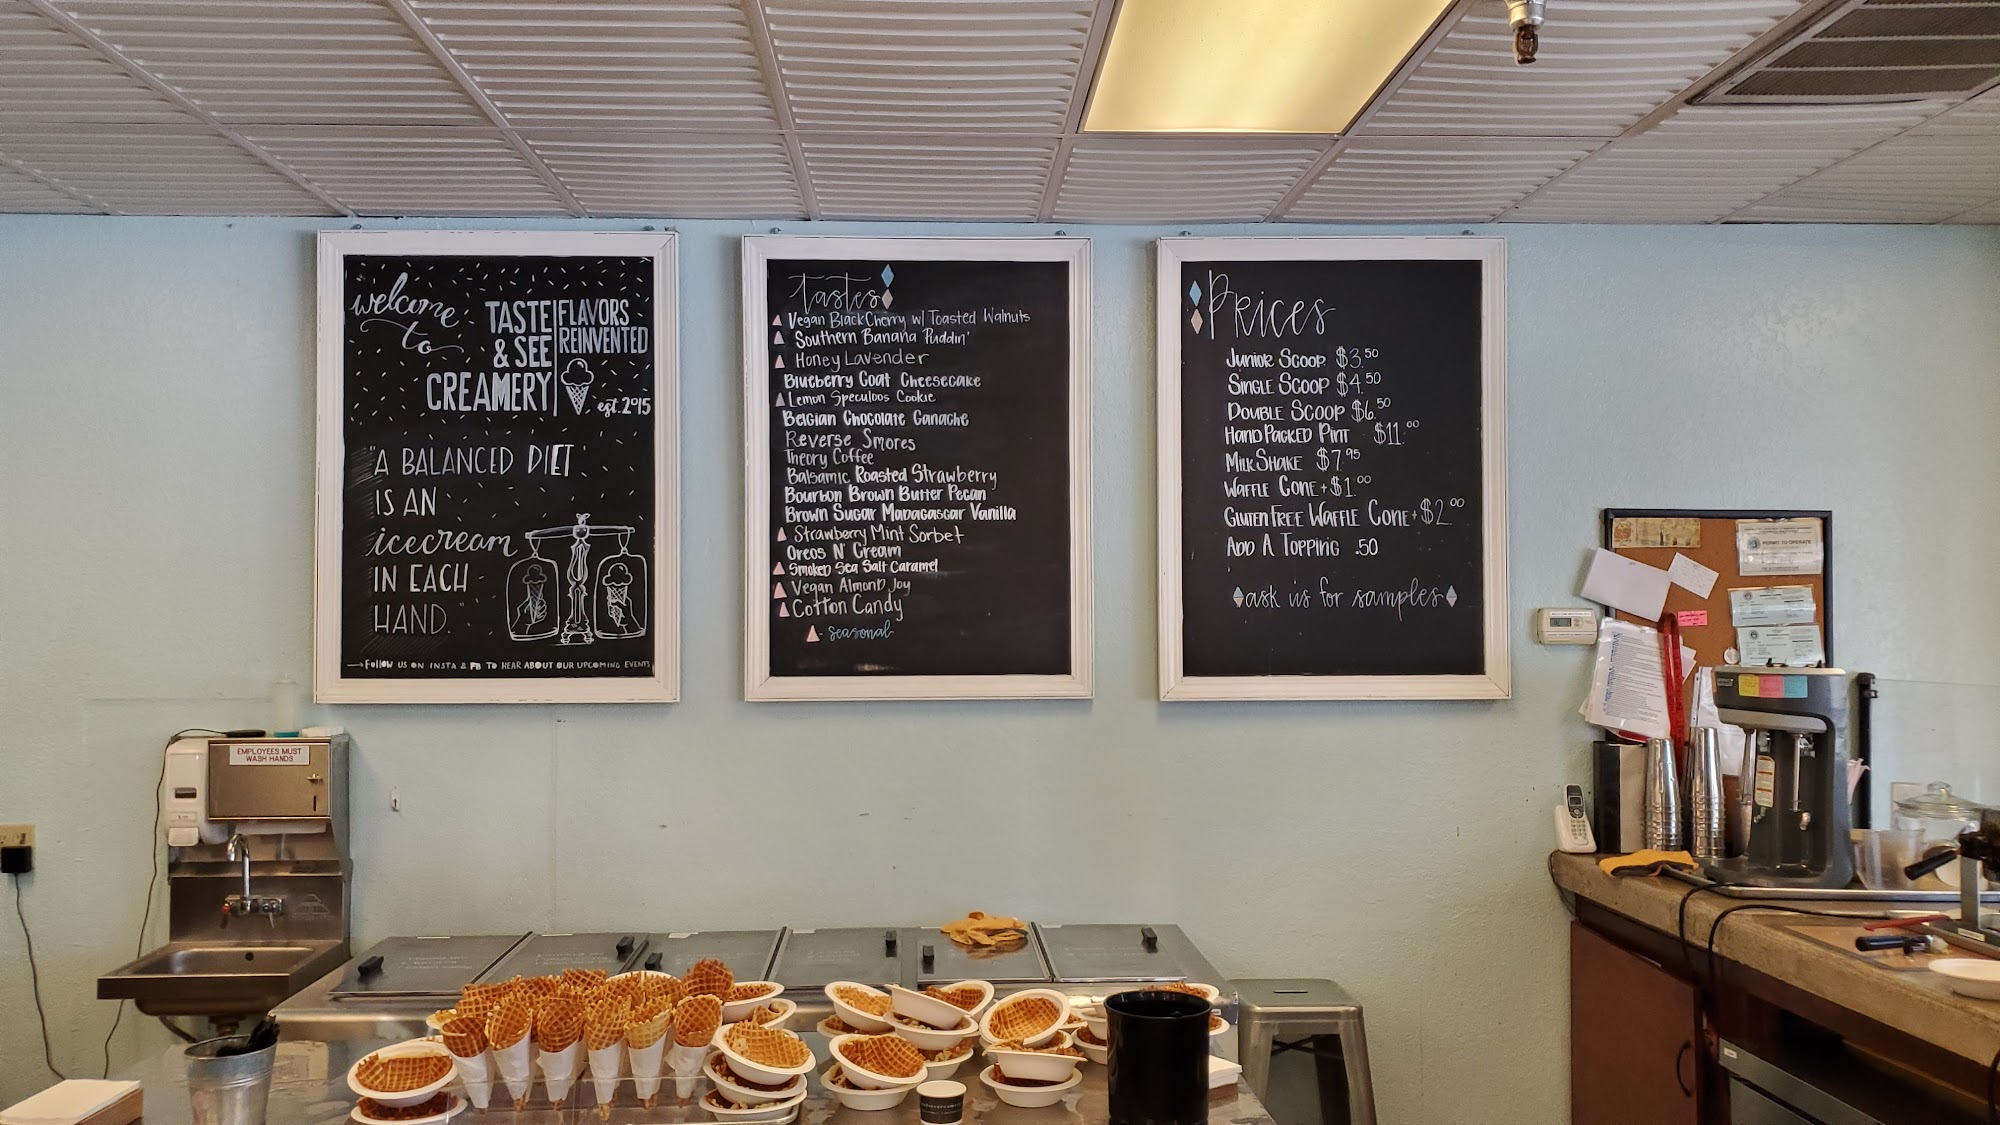 welcome
to
TASTE
& SEE
CREAMERY
FLAVORS
REINVENTED
est. 2015
"A BALANCED DIET
IS AN
icecream
IN EACH
HAND."
Follow us on insta & FB to hear about our upcoming events
tastes
Vegan Black Cherry w/ Toasted Walnuts
Southern Banana Puddin'
Honey Lavender
Blueberry Goat Cheesecake
Lemon Speculoos Cookie
Belgian Chocolate Ganache
Reverse Smores
Theory Coffee
Balsamic Roasted Strawberry
Bourbon Brown Butter Pecan
Brown Sugar Madagascar Vanilla
Strawberry Mint Sorbet
Oreos N' Cream
Smoked Sea Salt Caramel
Vegan Almond Joy
Cotton Candy
- seasonal
Prices
Junior Scoop $3.50
Single Scoop $4.50
Double Scoop $6.50
Hand Packed Pint $11.00
MilkShake $7.95
Waffle Cone + $1.00
Gluten Free Waffle Cone + $2.00
Add A Topping .50
ask us for samples
EMPLOYEES MUST
WASH HANDS
PERMIT TO OPERATE